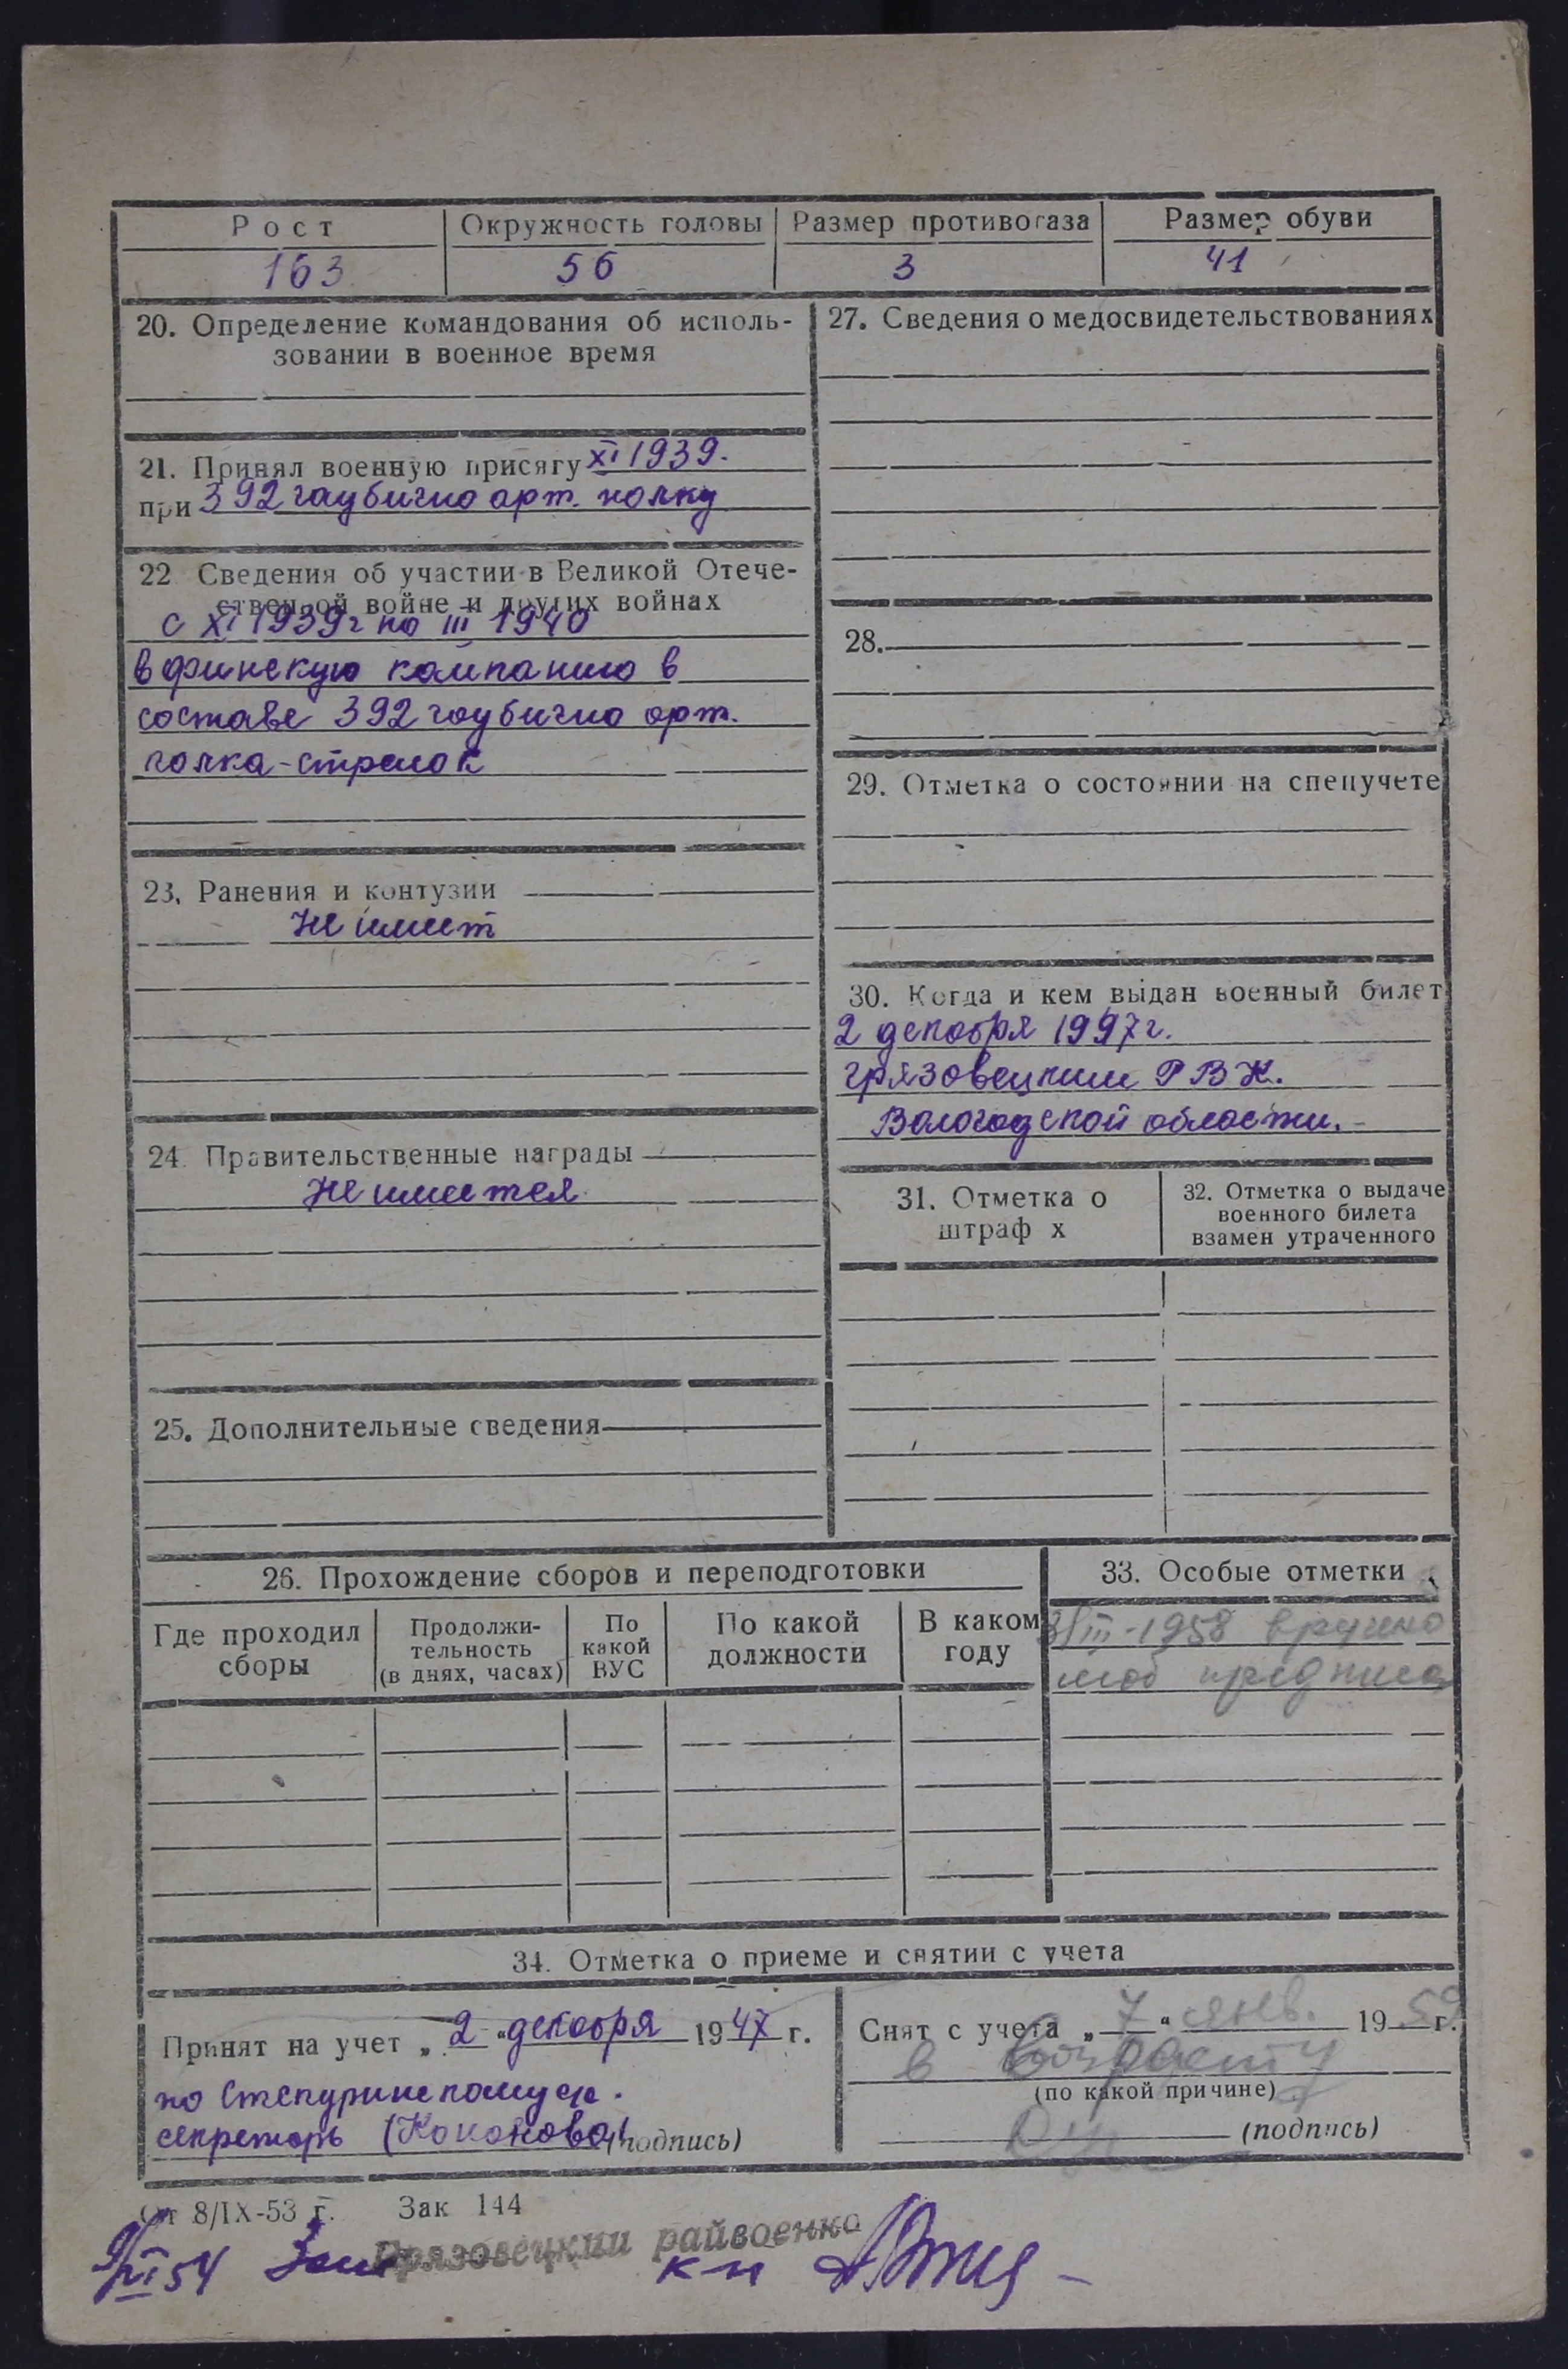 Рост Окружность головы Размер противогаза Размер обуви
163 56 3 41
20. Определение командования об исполь-
зовании в военное время
21. Принял военную присягу XI 1939.
при 392 гаубично арт. полку
22 Сведения об участии в Великой Отече-
ственной войне и других войнах
с XI 1939г по III 1940
в финскую компанию в
составе 392 гаубично арт.
полка-стрелок
23. Ранения и контузии
Не имеет
24. Правительственные награды
Не имеется
25. Дополнительные сведения
27. Сведения о медосвидетельствованиях
28.
29. Отметка о состоянии на спецучете
30. Когда и кем выдан военный билет
2 декабря 1947г.
Грязовецким РВК.
Вологодской области.
31. Отметка о
штраф х
32. Отметка о выдаче
военного билета
взамен утраченного
26. Прохождение сборов и переподготовки
Где проходил
сборы
Продолжи-
тельность
(в днях, часах)
По
какой
ВУС
По какой
должности
В каком
году
33. Особые отметки
III-1958 вручено
моб предписа
34. Отметка о приеме и снятии с учета
Принят на учет „2“ декабря 1947 г.
по
секретарь (Коконова) (подпись)
Снят с учета „7“ янв. 1959 г.
в возрасту
(по какой причине)
(подпись)
От 8/IX-53 г. Зак 144
Грязовецкий райвоенко
9/XI 54 к-н